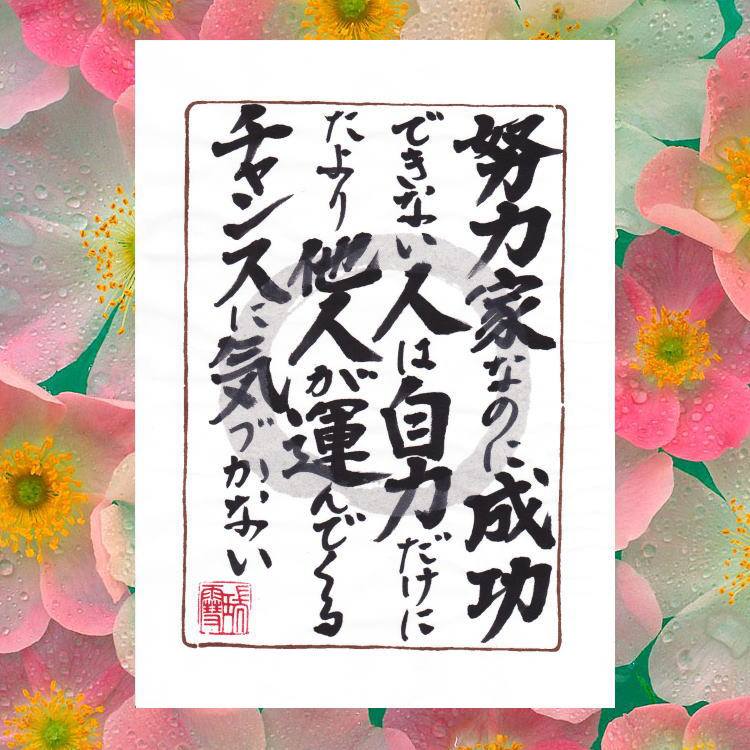 努力家なのに成功
できない人は自力だけに
たより他人が運んでくる
チャンスに気づかない